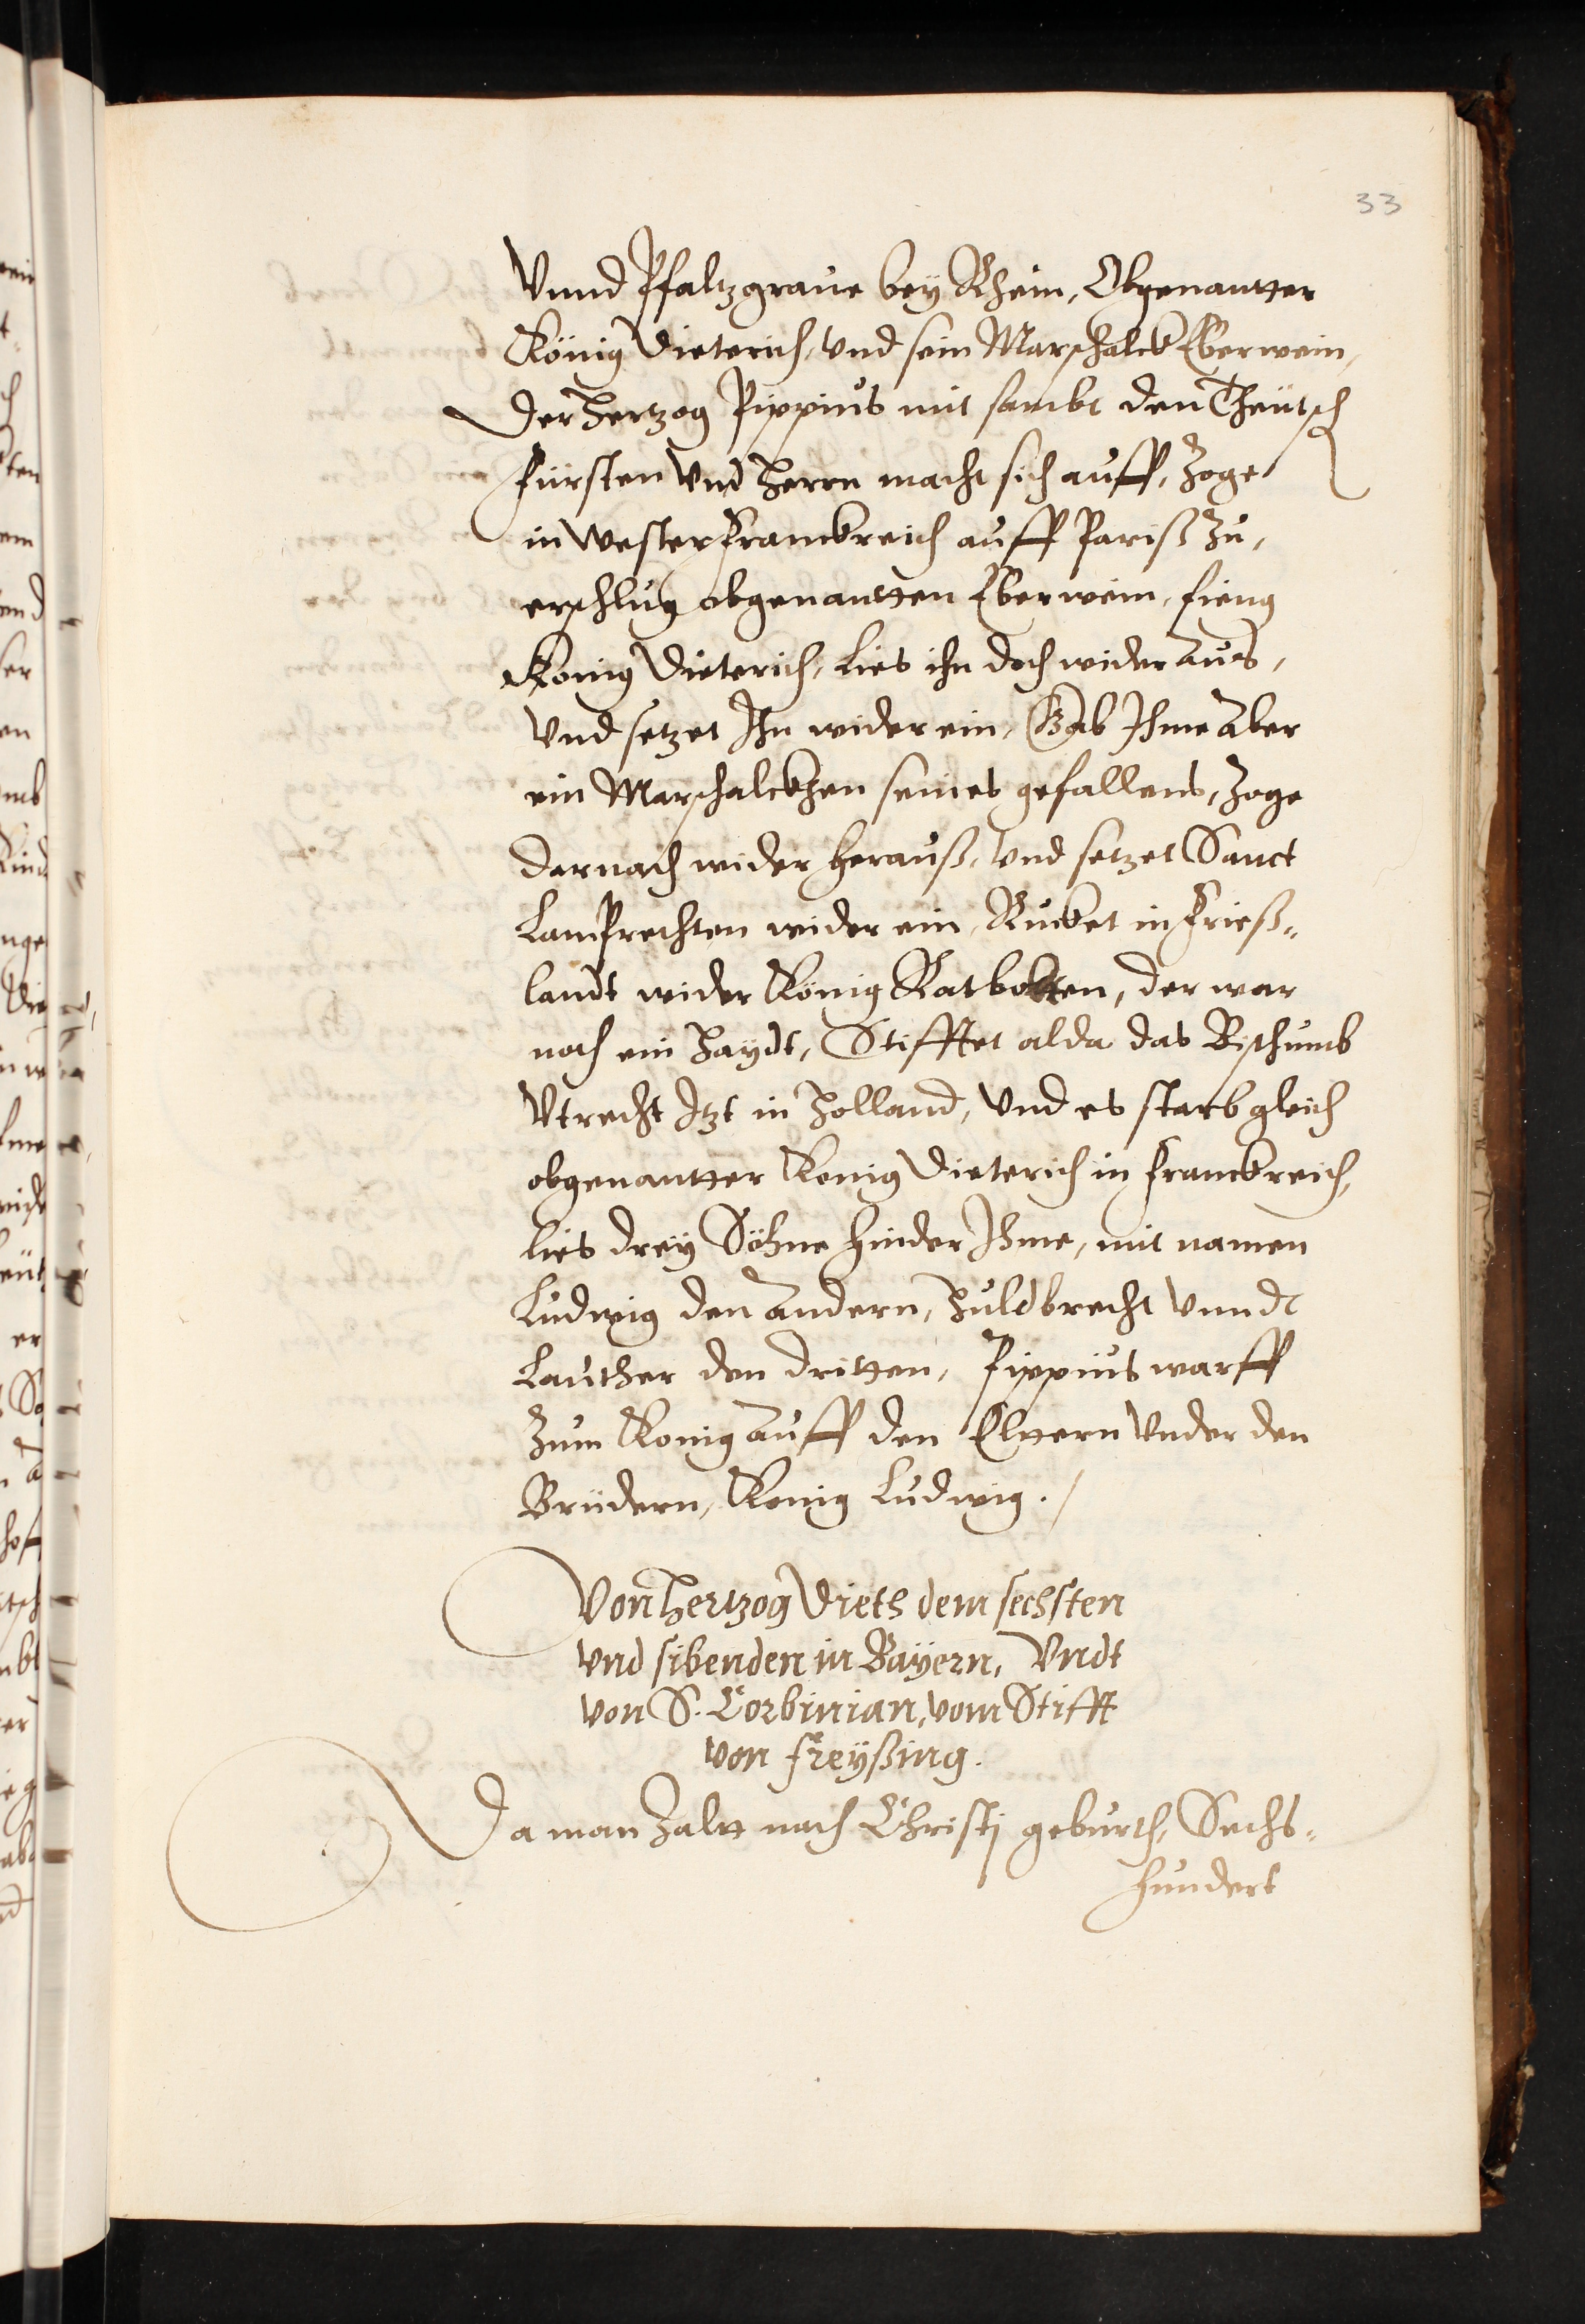 33
Vnnd Pfaltzgraue bey Rhein, Obgenantter
König Dieterich, vnd sein Marschalck Eberwein,
Der Hertzog Pippinus mit sambt den Theütsch
fürsten Vnd Herrn macht sich auff, Zoge
in Westerfranckreich auff Pariß Zu,
erschlug obgenantten Eberwein, fieng
König Dieterich, Lies ihn doch wider aus,
Vnd setzet Ihn wider ein, Gab Ihme aber
ein Marschalckhen seines gefallens, Zoge
darnach wider herauß, vnd setzet Sanct
Lamprechten wider ein, Rucket in Frieß-
landt wider König Ratbotten, der war
noch ein Haydt, Stifftet alda das Bisthumb
Vtrecht Itzt in Holland, Vnd es starb gleich
obgenantter König Dieterich in Franckreich,
lies drey Söhne hinder Ihme, mit namen
Ludwig den andern, Huldbrecht vnndt
Lauther den dritten, Pippinus warff
Zum König auff den Elttern Vnder den
Brüdern, König Ludwig.
Von Hertzog Dieth dem sechsten
vnd sibenden in Bayern, Vndt
von S. Corbinian, vom Stifft
von Freyßing.
Da man Zaltt nach Christj geburth, Sechs-
hundert